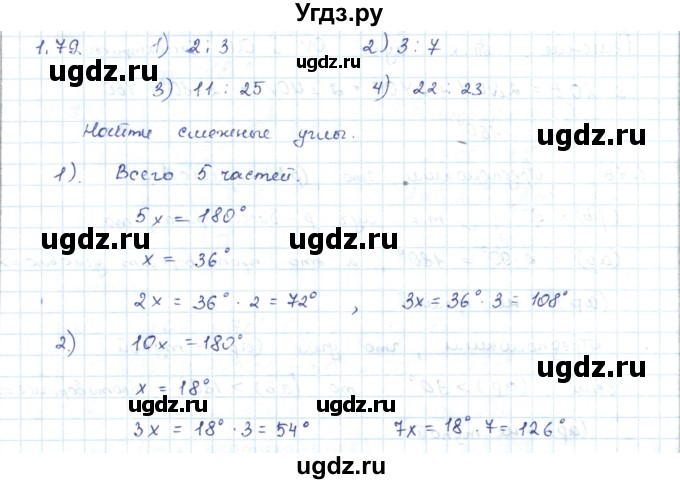 Угдз.ру
1.79. 1) 2 : 3 2) 3 : 7
ugdz.ru ugdz.ru ugdz.ru
3) 11 : 25 4) 22 : 23
Найти смежные углы.
ugdz.ru
1). Всего 5 частей.
ugdz.ru
5x = 180°
ugdz.ru ugdz.ru
x = 36°
ugdz.ru
2x = 36° · 2 = 72° , 3x = 36° · 3 = 108°
2) 10x = 180°
ugdz.ru ugdz.ru
x = 18°
ugdz.ru ugdz.ru
3x = 18° · 3 = 54° 7x = 18° · 7 = 126°
ugdz.ru